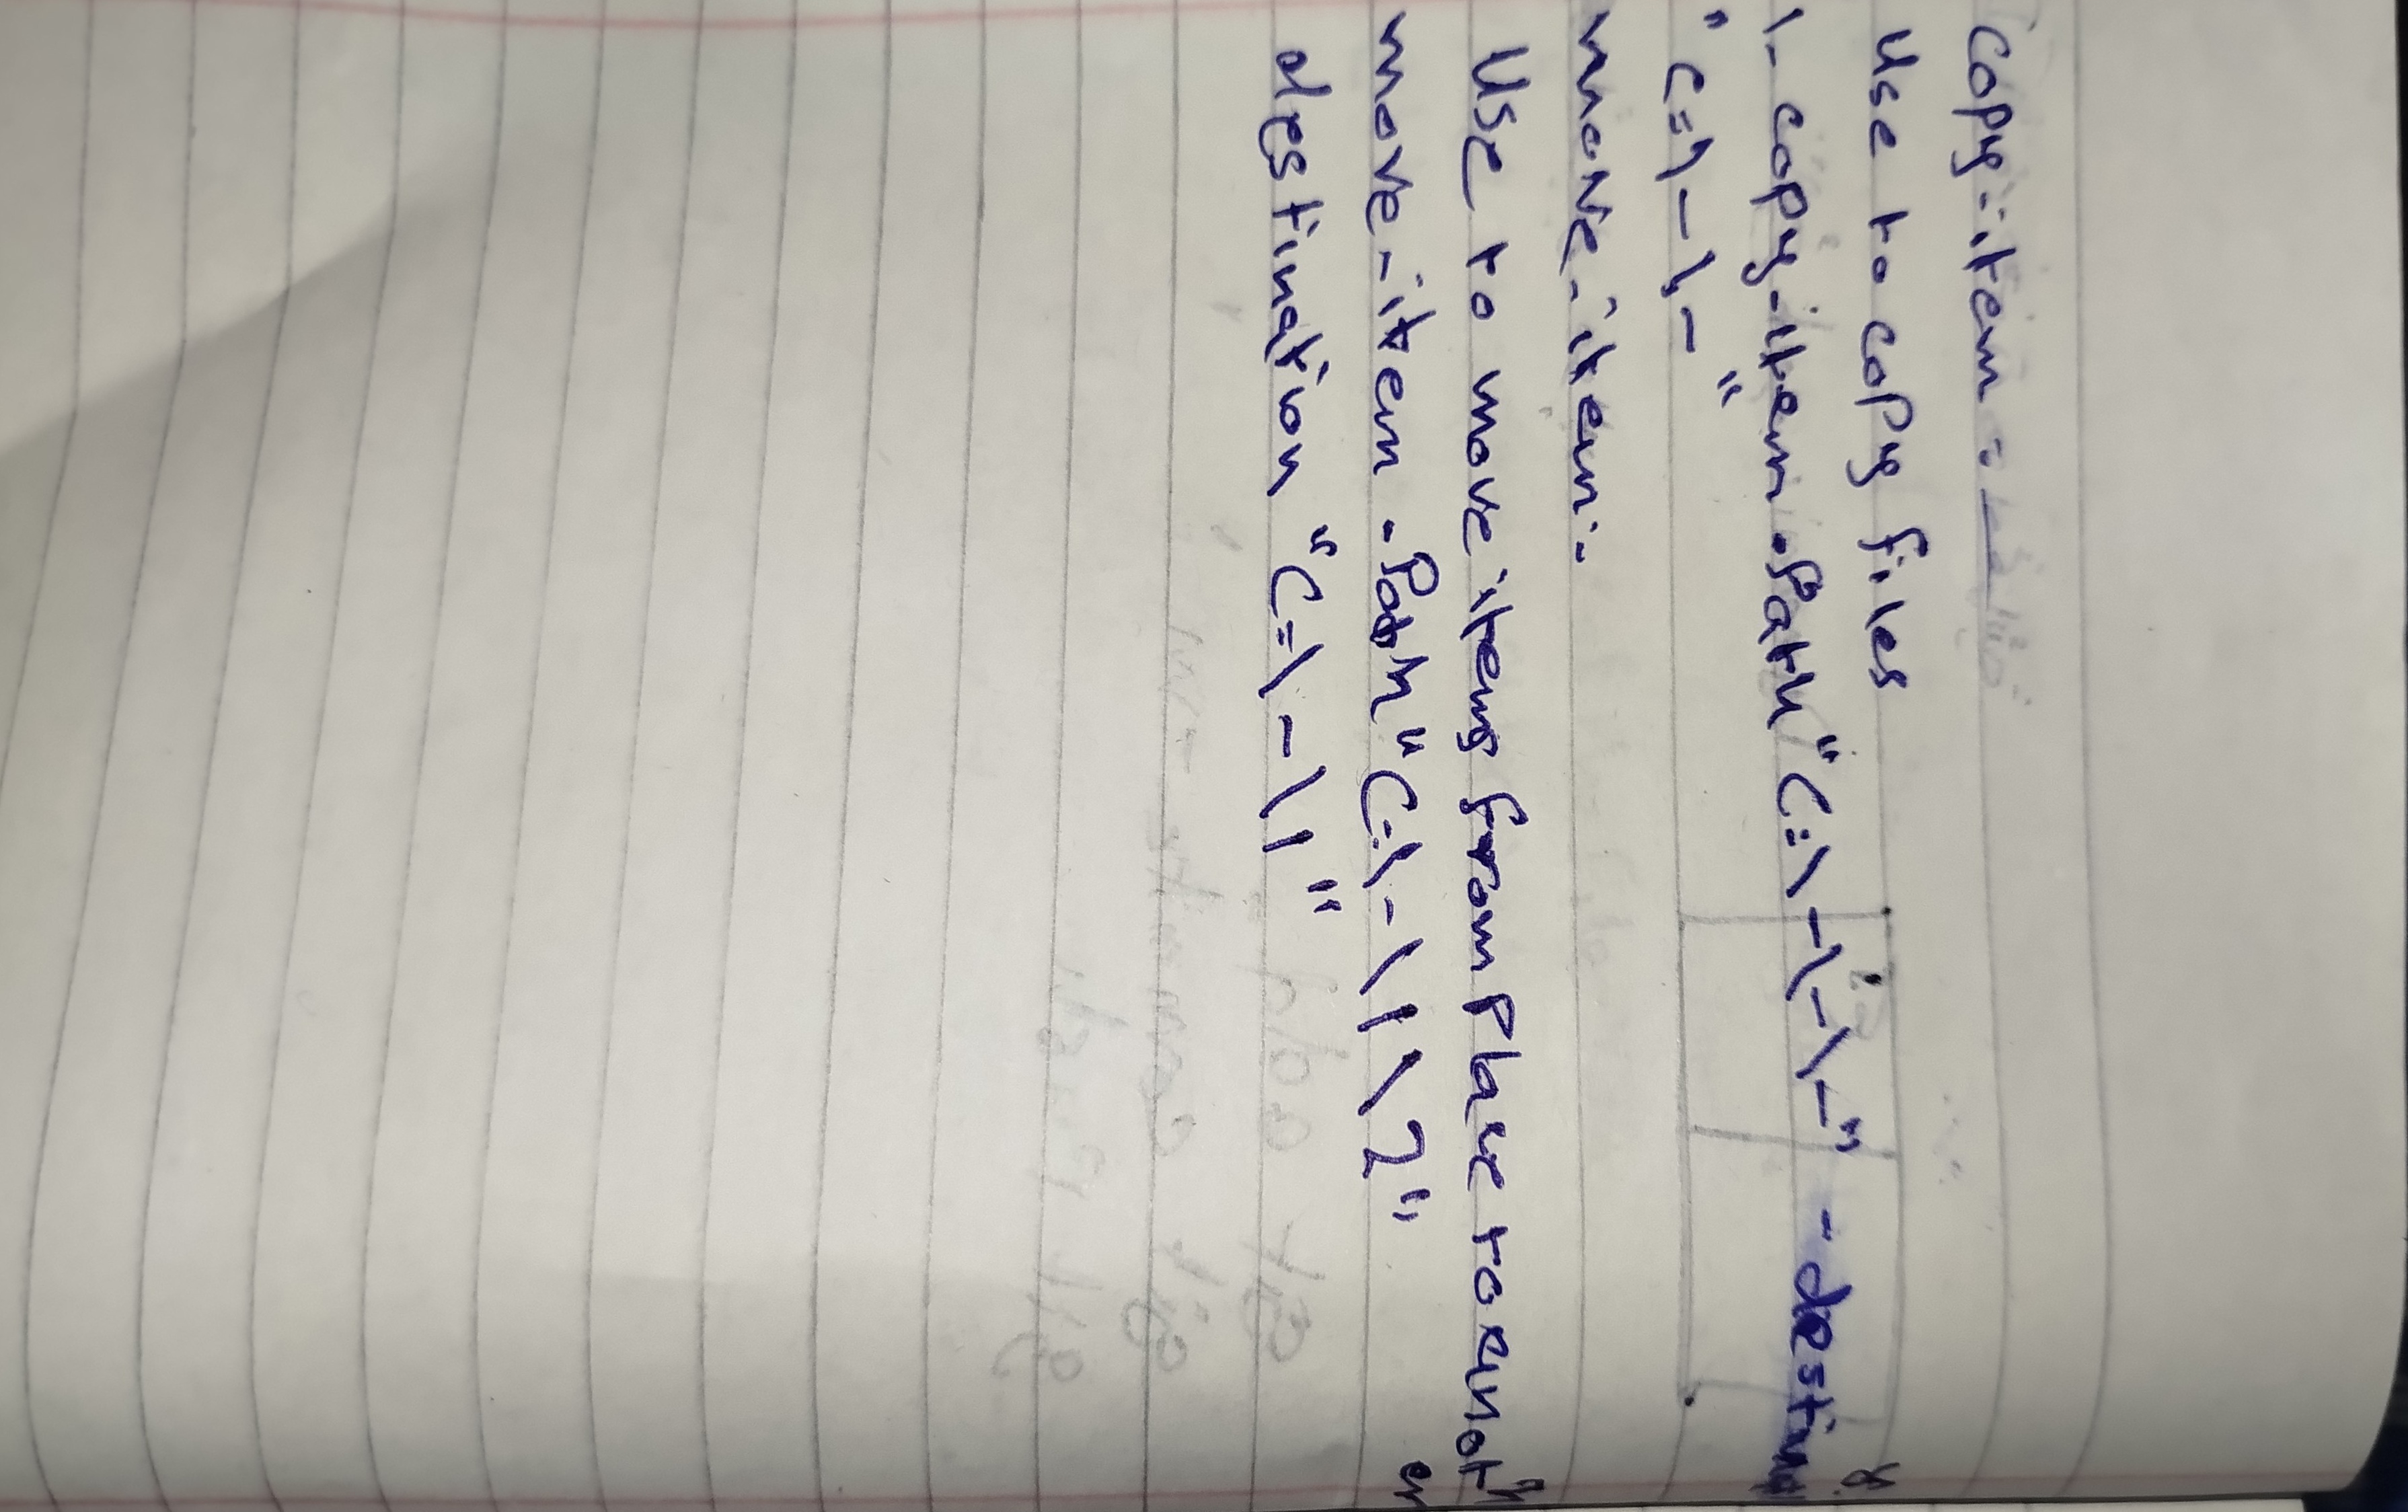 copy-item :-
Use to copy files
1- copy-item -Path "C:\-\-\-" -destina
"C:\-\-"
move-item:-
Use to move items from Place to another
move-item -Path "C:\-\1\2"
destination "C:\-\1"